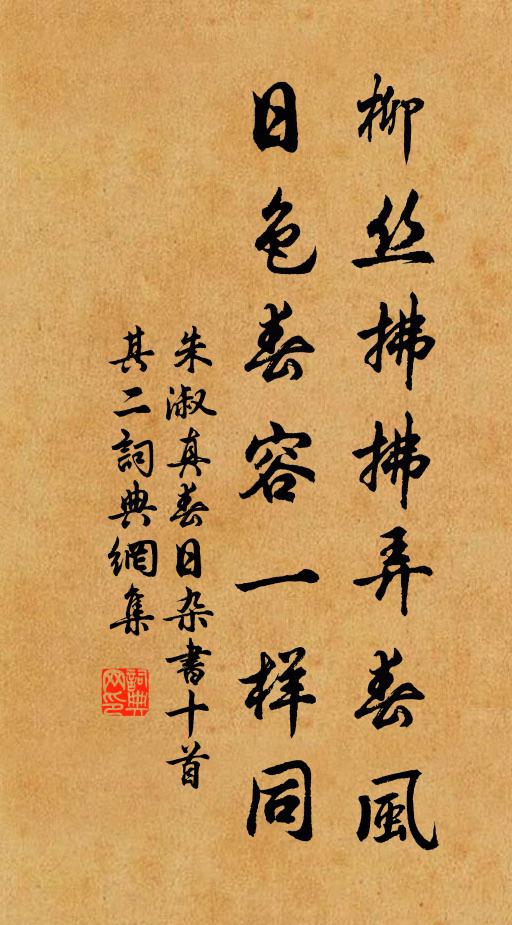 柳丝拂拂弄春風
日色春容一样同
朱淑真春日杂書十首
其二詞典網集
詞典網印